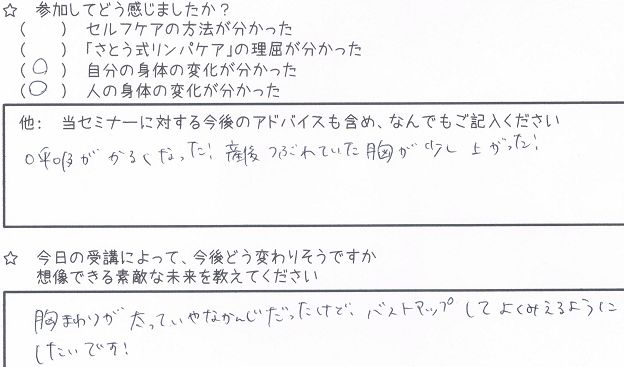 ☆ 参加してどう感じましたか？
(　　) セルフケアの方法が分かった
(　　) 「さとう式リンパケア」の理屈が分かった
(○) 自分の身体の変化が分かった
(○) 人の身体の変化が分かった
他: 当セミナーに対する今後のアドバイスも含め、なんでもご記入ください
呼吸がかるくなった! 産後つぶれていた胸が少し上がった!
☆ 今日の受講によって、今後どう変わりそうですか
想像できる素敵な未来を教えてください
胸まわりが太っていやなかんじだったけど、バストアップしてよくみえるように
したいです!